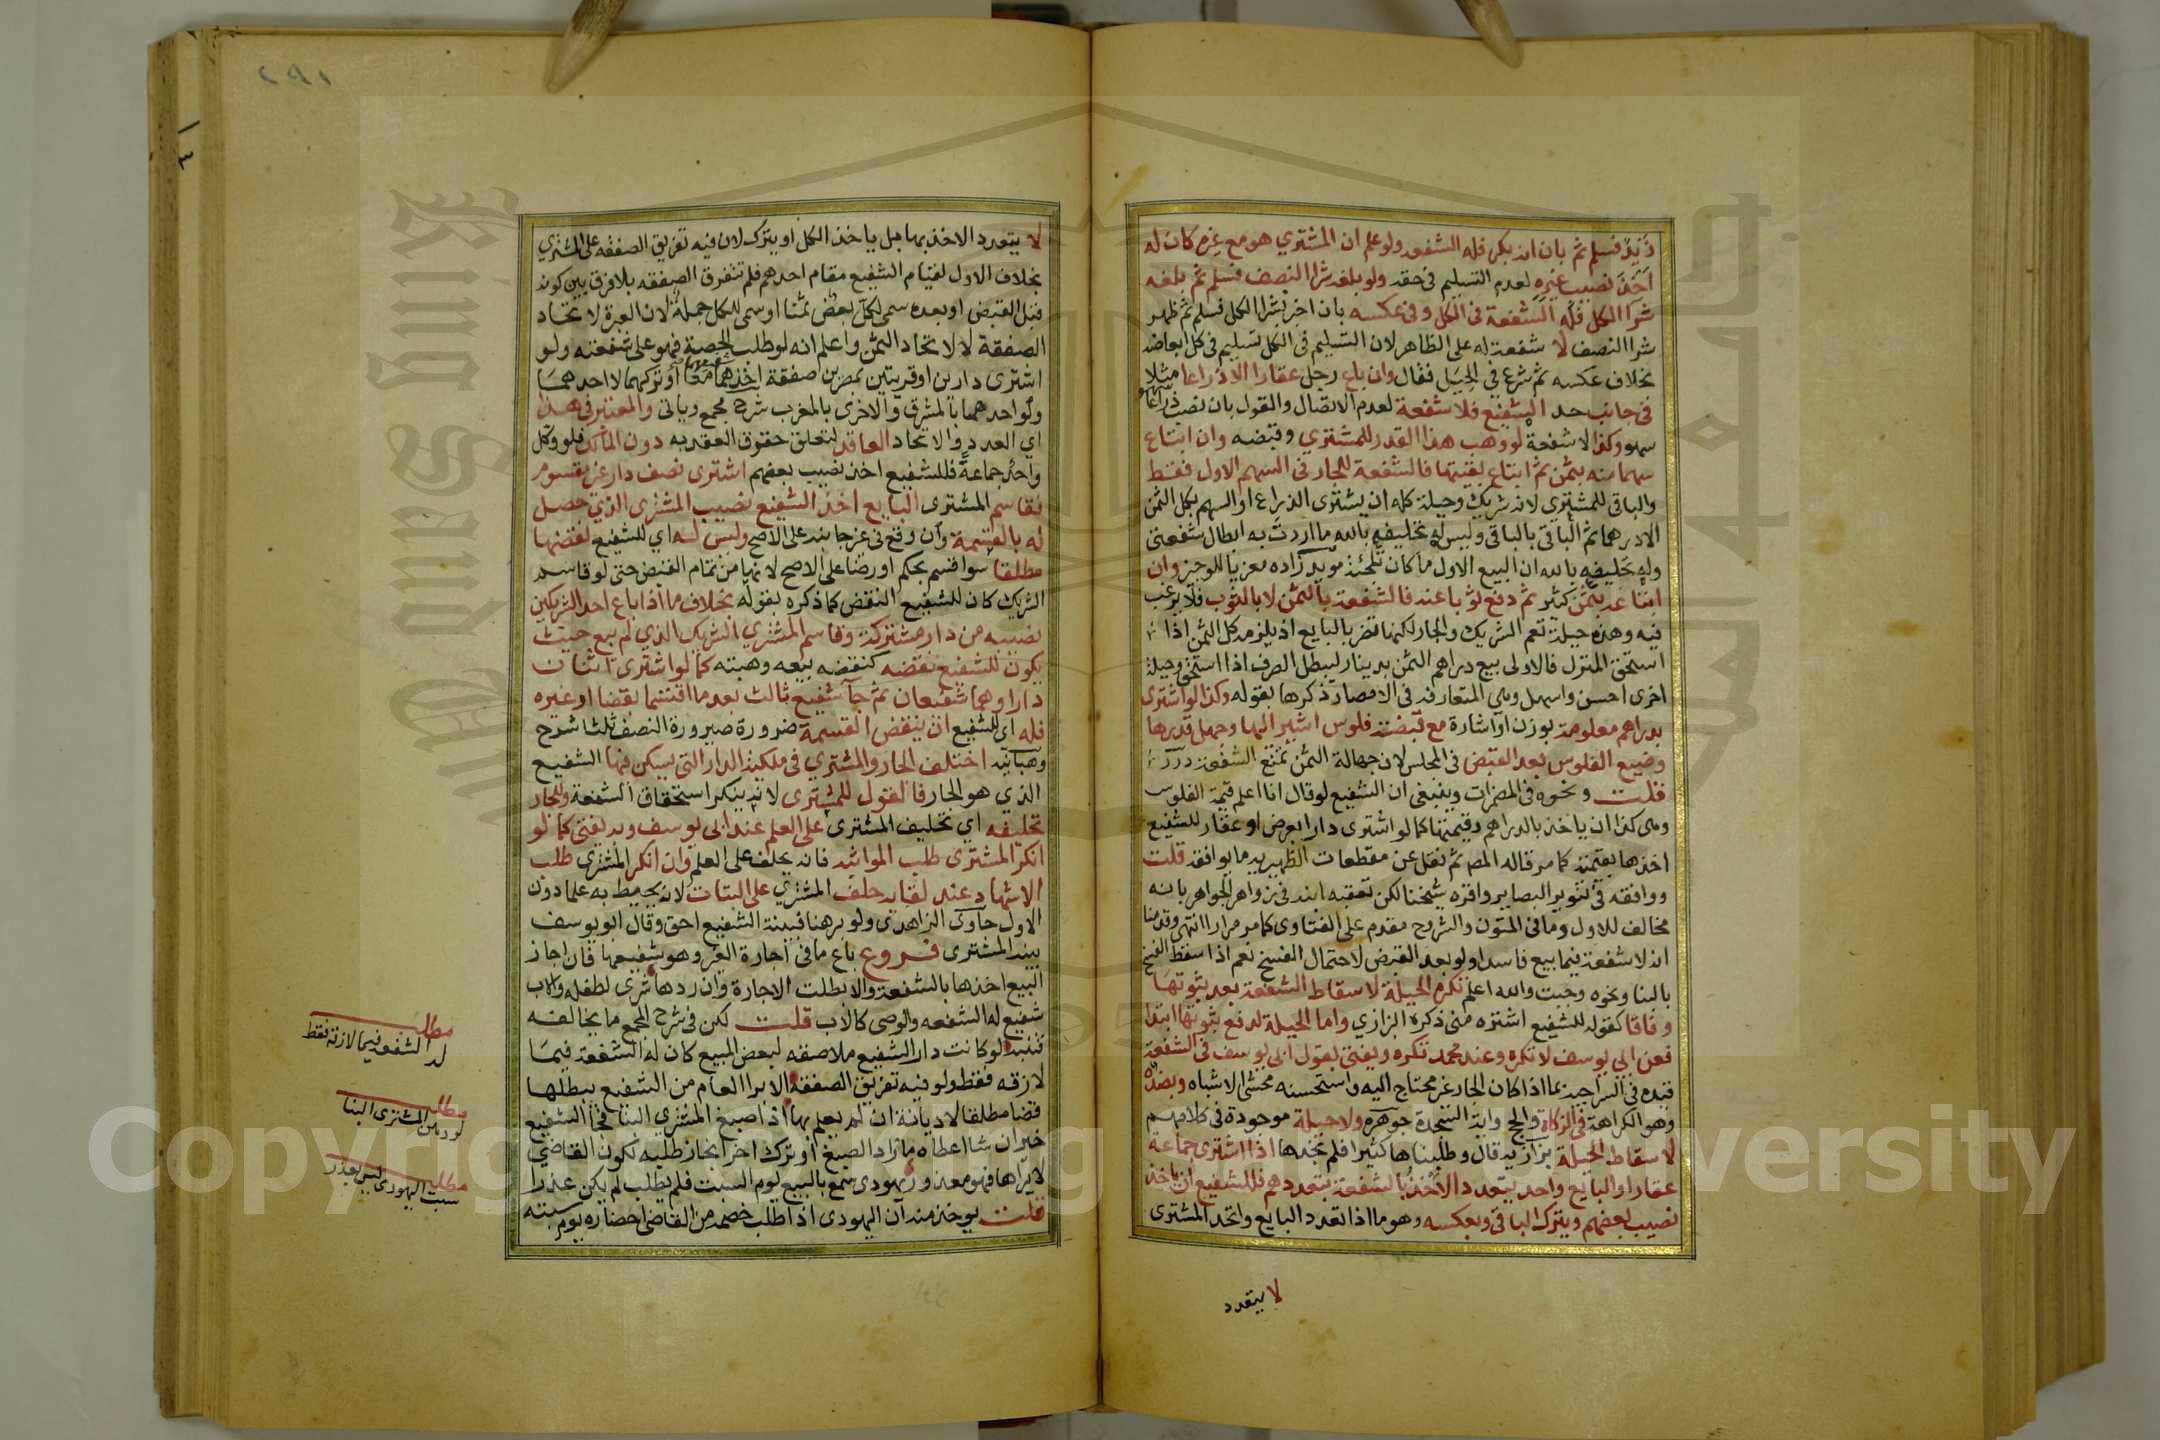 زيد فسلم ثم بان انه بكر فله الشفعه ولو علم ان المشتري هو مع غيره كان له
اخذ نصيب غيره لعدم التسليم في حقه ولو بلغه شرا النصف فسلم ثم بلغه
شرا الكل فله الشفعة في الكل وفي عكسه بان اخبر بشرا الكل فسلم ثم ظهر
شرا النصف لا شفعة له على الظاهر لان التسليم في الكل تسليم في كل ابعاضه
بخلاف عكسه ثم شرع في الحيل فقال وان باع رجل عقارا الا ذراعا مثلا
في جانب حد الشفيع فلا شفعة لعدم الاتصال والقول بان نصب ذراعا
سهو وكذا لا شفعة لو وهب هذا القدر للمشتري وقبضه وان ابتاع
سهما منه بثمن ثم ابتاع بقيتها فالشفعة للجار في السهم الاول فقط
والباقي للمشتري لانه شريك وحيلة كله ان يشتري الذراع او السهم بكل الثمن
الا درهما ثم الباقي بالباقي وليس له تحليفه بالله ما اردت به ابطال شفعتي
وله تحليفه بالله ان البيع الاول ما كان تلجئة مويد زاده معزيا للوجيز وان
ابتاعه بثمن كثير ثم دفع ثوبا عنه فالشفعة بالثمن لا بالثوب فلا يرغب
فيه وهذه حيلة تعم الشريك والجار لكنها تضر بالبايع اذ يلزمه كل الثمن اذا
استحق المنزل فالاولى بيع دراهم الثمن بدينار ليبطل الصرف اذا استحق وحيلة
اخرى احسن واسهل وهي المتعارفة في الامصار ذكرها بقوله وكذا لو اشترى
بدراهم معلومة بوزن او اشارة مع قبضة فلوس اشير اليها وجهل قدرها
وضيع الفلوس بعد القبض في المجلس لان جهالة الثمن تمنع الشفعة درر
قلت ونحوه في المضمرات وينبغي ان الشفيع لو قال انا اعلم قيمة الفلوس
وهي كذا ان ياخذ بالدراهم وقيمتها كما لو اشترى دارا بعرض او عقار للشفيع
اخذها بقيمته كما مر قاله المص ثم نقل عن مقطعات الظهيرية ما يوافقه قلت
ووافقه في تنوير البصاير واقره شيخنا لكن تعقبه ابنه في زواهر الجواهر بانه
مخالف للاول وما في المتون والشروح مقدم على الفتاوى كما مر مرارا انتهى وقدمنا
انه لا شفعة فيما بيع فاسدا ولو بعد القبض لاحتمال الفسخ نعم اذا سقط الفسخ
بالبنا ونحوه وجبت والله اعلم تكره الحيلة لاسقاط الشفعة بعد ثبوتها
وفاقا كقوله للشفيع اشتره مني ذكره البزازي واما الحيلة لدفع ثبوتها ابتدا
فعن ابي يوسف لا تكره وعند محمد تكره ويفتى بقول ابي يوسف في الشفعة
قيده في السراجية بما اذا كان الجار غير محتاج اليه واستحسنه محشي الاشباه وبضده
وهو الكراهة في الزكاة والحج واية السجدة جوهره ولا حيلة موجودة في كلامهم
لاسقاط الحيلة بزازية قال وطلبناها كثيرا فلم نجدها اذا اشترى جماعة
عقارا والبايع واحد يتعدد الاخذ بالشفعة بتعددهم فللشفيع ان ياخذ
نصيب بعضهم ويترك الباقي وبعكسه وهو ما اذا تعدد البايع واتحد المشتري
لا يتعدد
٢٩١
لا يتعدد الاخذ بها بل ياخذ الكل او يترك لان فيه تفريق الصفقه على المشتري
بخلاف الاول لقيام الشفيع مقام احدهم فلم تتفرق الصفقه بلا فرق بين كونه
قبل القبض او بعده سمى لكل بعض ثمنا او سمى للكل جملة لان العبرة لاتحاد
الصفقة لا لاتحاد الثمن واعلم انه لو طلب الحصة فهو على شفعته ولو
اشترى دارين او قريتين بمصرين صفقة اخذهما معا او تركهما لا احدهما
ولو احدهما بالمشرق والاخرى بالمغرب شرح مجمع وياتي والمعتبر في هذا
اي العدد والاتحاد العاقد لتعلق حقوق العقد به دون المالك فلو وكل
واحد جماعة فللشفيع اخذ نصيب بعضهم اشترى نصف دار غير مقسوم
فقاسم المشتري البايع اخذ الشفيع نصيب المشتري الذي حصل
له بالقسمة وان وقع في غير جانبه على الاصح وليس له اي للشفيع نقضها
مطلقا سوا قسم بحكم او رضا على الاصح لانها من تمام القبض حتى لو قاسم
الشريك كان للشفيع النقض كما ذكره بقوله بخلاف ما اذا باع احد الشريكين
نصيبه من دار مشتركة وقاسم المشتري الشريك الذي لم يبع حيث
يكون للشفيع نقضه كنقضه بيعه وهبته كما لو اشترى اثنان
دارا وهما شفيعان ثم جا شفيع ثالث بعد ما اقتسما بقضا او غيره
فله اي للشفيع ان ينقض القسمة ضرورة صيرورة النصف ثلثا شرح
وهبانية اختلف الجار والمشتري في ملكية الدار التي يسكن فيها الشفيع
الذي هو الجار فالقول للمشتري لانه ينكر استحقاق الشفعة وللجار
تحليفه اي تحليف المشتري على العلم عند ابي يوسف وبه يفتى كما لو
انكر المشتري طلب المواثبة فانه يحلف على العلم وان انكر المشتري طلب
الاشهاد عند لقايه حلف المشتري على البتات لانه يحيط به علما دون
الاول حاوي الزاهدي ولو برهنا فبينة الشفيع احق وقال ابو يوسف
بينة المشتري فروع باع ما في اجارة الغير وهو شفيعها فان اجاز
البيع اخذها بالشفعة والا بطلت الاجارة وان ردها شرى لطفله والاب
شفيع له الشفعه والوصي كالاب قلت لكن في شرح المجمع ما يخالفه
فتنبه لو كانت دار الشفيع ملاصقه لبعض المبيع كان له الشفعة فيما
لازقه فقط ولو فيه تفريق الصفقة الابرا العام من الشفيع يبطلها
قضا مطلقا لا ديانة ان لم يعلم بها اذا صبغ المشتري البنا فجا الشفيع
خير ان شا اعطاه ما زاد الصبغ او ترك اخر الجار طلبه لكون القاضي
لا يراها فهو معذور يهودي سمع بالبيع يوم السبت فلم يطلب لم يكن عذرا
قلت يوخذ منه ان اليهودي اذا طلب خصمه من القاضي احضاره يوم سبته
مطلب
له الشفعه فيما لازقه فقط
مطلب
لو دهن المشتري البنا
مطلب
سبت اليهودي ليس بعذر
Copyright © King Saud University